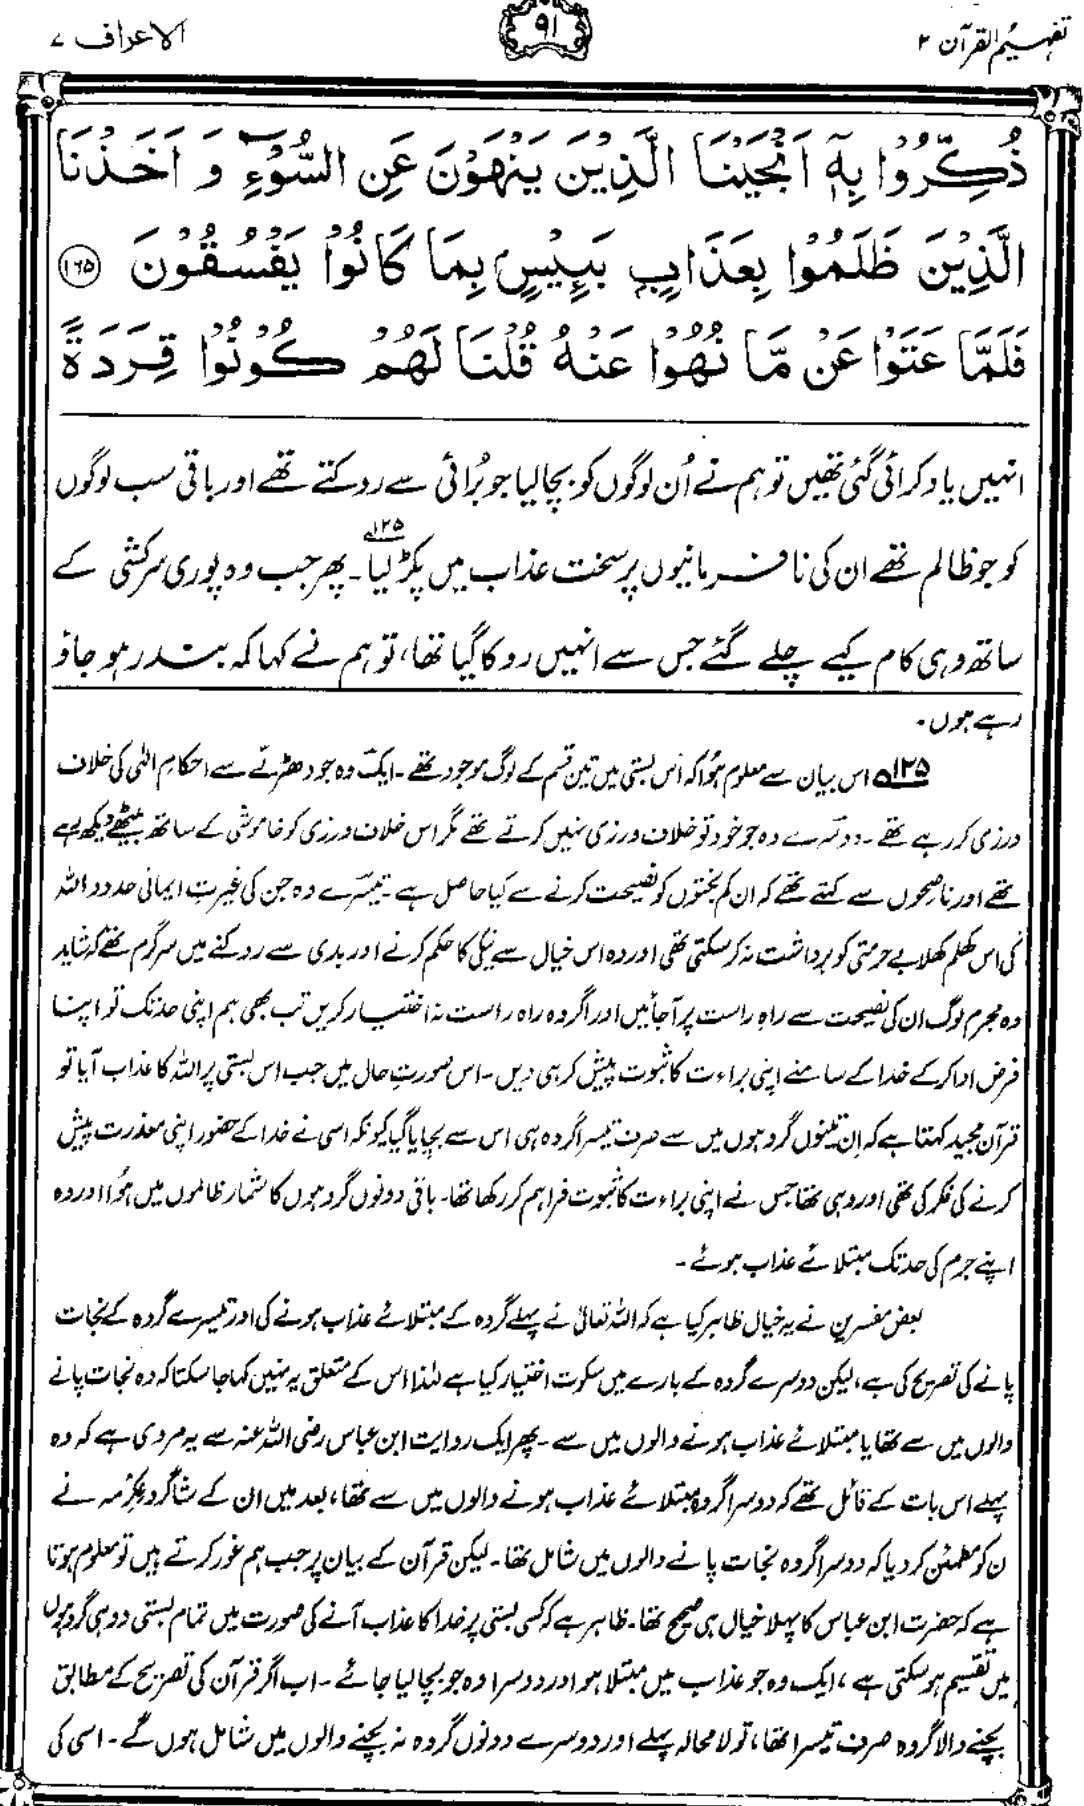 تفہیم القرآن ۲
۹۱
الاعراف ۷
ذُكِّرُوْا بِهٖۤ اَنْجَيْنَا الَّذِيْنَ يَنْهَوْنَ عَنِ السُّوْٓءِ وَ اَخَذْنَا
الَّذِيْنَ ظَلَمُوْا بِعَذَابٍۭ بَـِٔيْسٍۭ بِمَا كَانُوْا يَفْسُقُوْنَ ۱۶۵
فَلَمَّا عَتَوْا عَنْ مَّا نُهُوْا عَنْهُ قُلْنَا لَهُمْ كُوْنُوْا قِرَدَةً
انہیں یاد کرائی گئی تھیں تو ہم نے اُن لوگوں کو بچا لیا جو بُرائی سے روکتے تھے اور باقی سب لوگوں
کو جو ظالم تھے ان کی نافرمانیوں پر سخت عذاب میں پکڑ لیا۱۲۵۔ پھر جب وہ پوری سرکشی کے
ساتھ وہی کام کیے چلے گئے جس سے انہیں روکا گیا تھا، تو ہم نے کہا کہ بندر ہو جاؤ
رہے ہوں۔
۱۲۵ اس بیان سے معلوم ہُوا کہ اس بستی میں تین قسم کے لوگ موجود تھے۔ ایک وہ جو دھڑلے سے احکامِ الٰہی کی خلاف
ورزی کر رہے تھے۔ دوسرے وہ جو خود تو خلاف ورزی نہیں کرتے تھے مگر اس خلاف ورزی کو خاموشی کے ساتھ بیٹھے دیکھ رہے
تھے اور ناصحوں سے کہتے تھے کہ ان کم بختوں کو نصیحت کرنے سے کیا حاصل ہے۔ تیسرے وہ جن کی غیرت ایمانی حدود اللہ
کی اس کھلم کھلا بے حرمتی کو برداشت نہ کر سکتی تھی اور وہ اس خیال سے نیکی کا حکم کرنے اور بدی سے روکنے میں سرگرم تھے کہ شاید
وہ مجرم لوگ ان کی نصیحت سے راہِ راست پر آجائیں اور اگر وہ راہ راست نہ اختیار کریں تب بھی ہم اپنی حد تک تو اپنا
فرض ادا کر کے خدا کے سامنے اپنی براءت کا ثبوت پیش کر ہی دیں۔ اس صورتِ حال میں جب اس بستی پر اللہ کا عذاب آیا تو
قرآن مجید کہتا ہے کہ اِن تینوں گروہوں میں سے صرف تیسرا گروہ ہی اس سے بچایا گیا کیونکہ اسی نے خدا کے حضور اپنی معذرت پیش
کرنے کی فکر کی تھی اور وہی تھا جس نے اپنی براءت کا ثبوت فراہم کر رکھا تھا۔ باقی دونوں گروہوں کا شمار ظالموں میں ہُوا اور وہ
اپنے جرم کی حد تک مبتلائے عذاب ہوئے۔
بعض مفسرین نے یہ خیال ظاہر کیا ہے کہ اللہ تعالیٰ نے پہلے گروہ کے مبتلائے عذاب ہونے کی اور تیسرے گروہ کے نجات
پانے کی تصریح کی ہے، لیکن دوسرے گروہ کے بارے میں سکوت اختیار کیا ہے لہٰذا اس کے متعلق یہ نہیں کہا جا سکتا کہ وہ نجات پانے
والوں میں سے تھا یا مبتلائے عذاب ہونے والوں میں سے۔ پھر ایک روایت ابن عباس رضی اللہ عنہ سے یہ مروی ہے کہ وہ
پہلے اس بات کے قائل تھے کہ دوسرا گروہ مبتلائے عذاب ہونے والوں میں سے تھا، بعد میں ان کے شاگرد عِکرْمہ نے
ن کو مطمئن کر دیا کہ دوسرا گروہ نجات پانے والوں میں شامل تھا۔ لیکن قرآن کے بیان پر جب ہم غور کرتے ہیں تو معلوم ہوتا
ہے کہ حضرت ابن عباس کا پہلا خیال ہی صحیح تھا۔ ظاہر ہے کہ کسی بستی پر خدا کا عذاب آنے کی صورت میں تمام بستی دو ہی گروہوں
میں تقسیم ہو سکتی ہے، ایک وہ جو عذاب میں مبتلا ہو اور دوسرا وہ جو بچا لیا جائے۔ اب اگر قرآن کی تصریح کے مطابق
بچنے والا گروہ صرف تیسرا تھا، تو لا محالہ پہلے اور دوسرے دونوں گروہ نہ بچنے والوں میں شامل ہوں گے۔ اسی کی